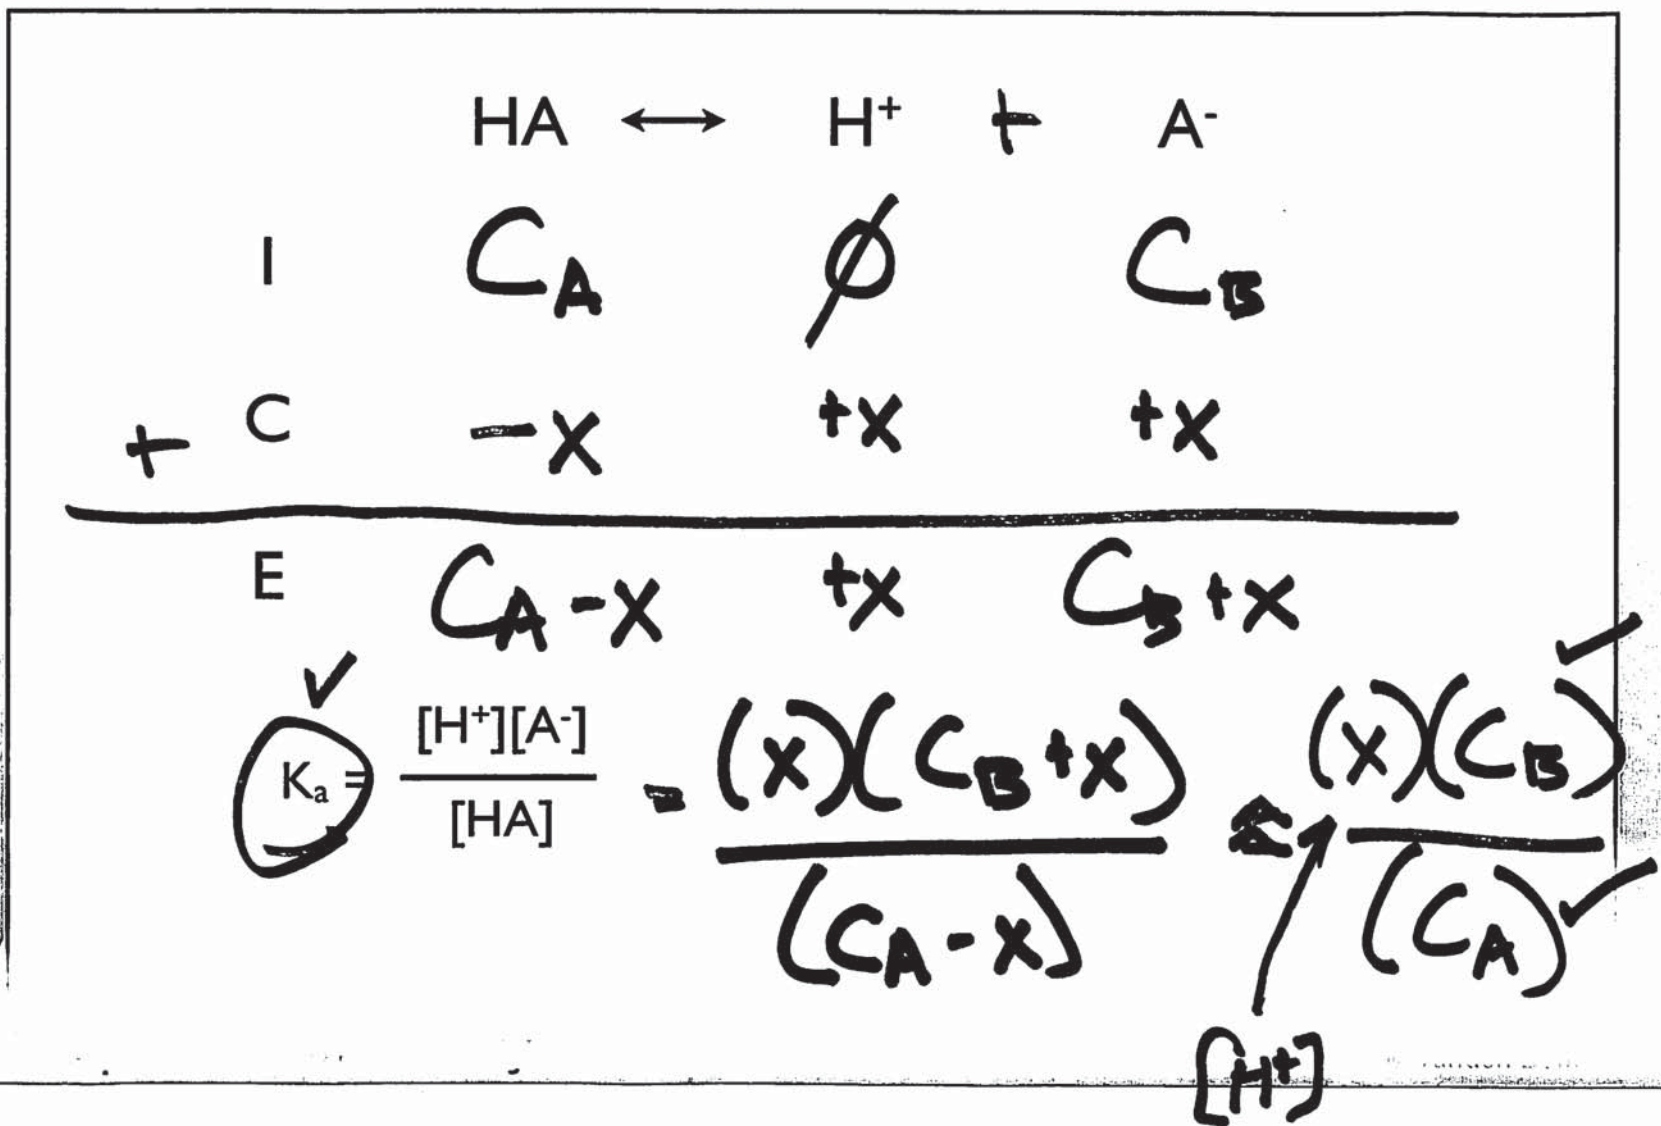 HA ↔ H⁺ + A⁻
I C_A ∅ C_B
+ C -x +x +x
E C_A-x +x C_B+x
✓ ✓
K_a = [H⁺][A⁻] / [HA] = (x)(C_B+x) / (C_A-x) ≈ (x)(C_B) / (C_A) ✓
[H⁺]